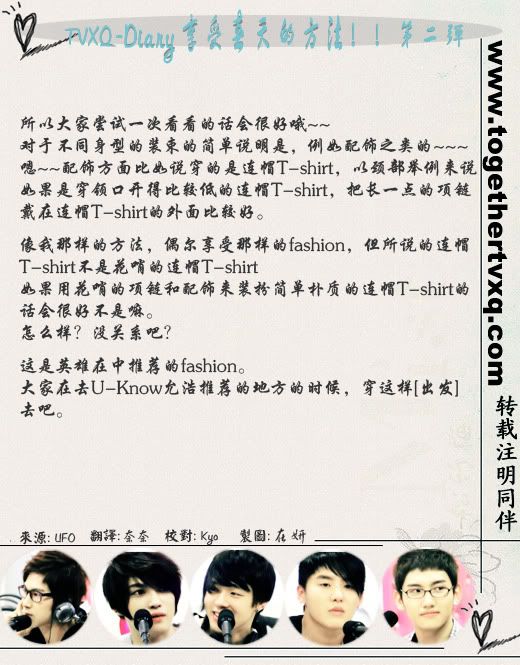 TVXQ-Diary 享受春天的方法！！第二弹
所以大家尝试一次看看的话会很好哦~~
对于不同身型的装束的简单说明是，例如配饰之类的~~~
嗯~~配饰方面比如说穿的是连帽T-shirt，以颈部举例来说
如果是穿领口开得比较低的连帽T-shirt，把长一点的项链
戴在连帽T-shirt的外面比较好。
像我那样的方法，偶尔享受那样的fashion，但所说的连帽
T-shirt不是花哨的连帽T-shirt
如果用花哨的项链和配饰来装扮简单朴质的连帽T-shirt的
话会很好不是嘛。
怎么样？没关系吧？
这是英雄在中推荐的fashion。
大家在去U-Know允浩推荐的地方的时候，穿这样[出发]
去吧。
www.togethertvxq.com
转载注明同伴
來源: UFO 翻譯: 奈奈 校對: Kyo 製圖: 在妍